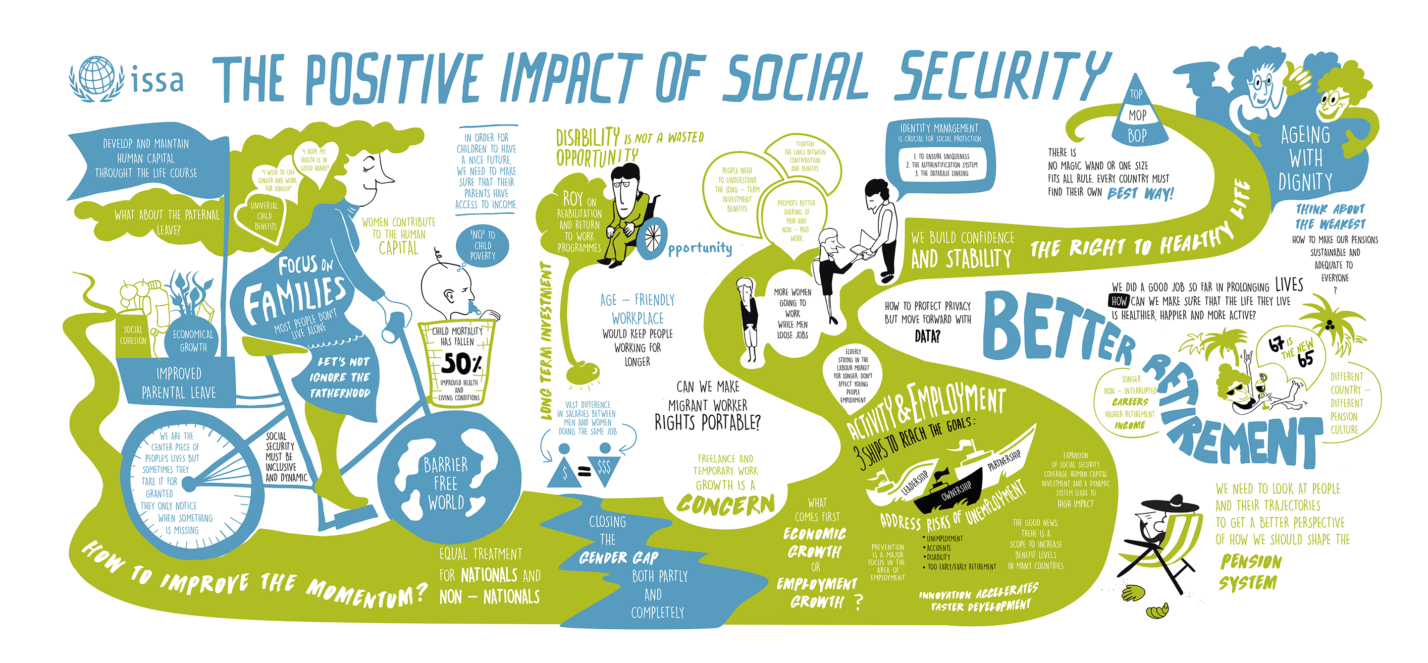 issa
THE POSITIVE IMPACT OF SOCIAL SECURITY
DEVELOP AND MAINTAIN
HUMAN CAPITAL
THROUGHT THE LIFE COURSE
WHAT ABOUT THE PATERNAL
LEAVE?
"I WISH TO LIVE
LONGER AND WORK
FOR LONGER"
"I HOPE MY
HEALTH IS IN
GOOD HANDS"
UNIVERSAL
CHILD
BENEFITS
WOMEN CONTRIBUTE
TO THE HUMAN
CAPITAL
IN ORDER FOR
CHILDREN TO HAVE
A NICE FUTURE,
WE NEED TO MAKE
SURE THAT THEIR
PARENTS HAVE
ACCESS TO INCOME
'NO' TO
CHILD
POVERTY
FOCUS ON
FAMILIES
MOST PEOPLE DON'T
LIVE ALONE
LET'S NOT
IGNORE THE
FATHERHOOD
SOCIAL
COHESION
ECONOMICAL
GROWTH
IMPROVED
PARENTAL LEAVE
CHILD MORTALITY
HAS FALLEN
50%
IMPROVED HEALTH
AND
LIVING CONDITIONS
WE ARE THE
CENTER PIECE OF
PEOPLE'S LIVES BUT
SOMETIMES THEY
TAKE IT FOR
GRANTED
THEY ONLY NOTICE
WHEN SOMETHING
IS MISSING
SOCIAL
SECURITY
MUST BE
INCLUSIVE
AND DYNAMIC
BARRIER
FREE
WORLD
HOW TO IMPROVE THE MOMENTUM?
EQUAL TREATMENT
FOR NATIONALS AND
NON – NATIONALS
DISABILITY IS NOT A WASTED
OPPORTUNITY
ROY ON
REABILITATION
AND RETURN
TO WORK
PROGRAMMES
pportunity
LONG TERM INVESTMENT
AGE – FRIENDLY
WORKPLACE
WOULD KEEP PEOPLE
WORKING FOR
LONGER
VAST DIFFERENCE
IN SALARIES BETWEEN
MEN AND WOMEN
DOING THE SAME JOB
$ = $$$
CAN WE MAKE
MIGRANT WORKER
RIGHTS PORTABLE?
FREELANCE AND
TEMPORARY WORK
GROWTH IS A
CONCERN
CLOSING
THE
GENDER GAP
BOTH PARTLY
AND
COMPLETELY
PEOPLE NEED
TO UNDERSTAND
THE LONG – TERM
INVESTMENT
BENEFITS
TIGHTEN
THE LINKS BETWEEN
CONTRIBUTION
AND BENEFITS
PROMOTE BETTER
SHARING OF
PAID AND
NON – PAID
WORK
IDENTITY MANAGEMENT
IS CRUCIAL FOR SOCIAL PROTECTION
1. TO ENSURE UNIQUENESS
2. THE AUTHENTIFICATION SYSTEM
3. THE DATABASE LINKING
MORE WOMEN
GOING TO
WORK
WHILE MEN
LOOSE JOBS
WE BUILD CONFIDENCE
AND STABILITY
THE RIGHT TO HEALTHY LIFE
HOW TO PROTECT PRIVACY
BUT MOVE FORWARD WITH
DATA?
ELDERLY
STAYING IN THE
LABOUR MARKET
FOR LONGER, DON'T
AFFECT YOUNG
PEOPLE
EMPLOYMENT
ACTIVITY & EMPLOYMENT
3 SHIPS TO REACH THE GOALS:
LEADERSHIP
OWNERSHIP
PARTNERSHIP
ADDRESS RISKS OF UNEMPLOYMENT
• UNEMPLOYMENT
• ACCIDENTS
• DISABILITY
• TOO EARLY/EARLY RETIREMENT
WHAT
COMES FIRST
ECONOMIC
GROWTH
OR
EMPLOYMENT
GROWTH ?
PREVENTION
IS A MAJOR
FOCUS IN THE
AREA OF
EMPLOYMENT
EXPANSION
OF SOCIAL SECURITY
COVERAGE, HUMAN CAPITAL
INVESTMENT, AND A DYNAMIC
SYSTEM LEADS TO
HIGH IMPACT
THE GOOD NEWS:
TREHE IS A
SCOPE TO INCREASE
BENEFIT LEVELS
IN MANY COUNTRIES
INNOVATION ACCELERATES
TASTER DEVELOPMENT
TOP
MOP
BOP
THERE IS
NO MAGIC WAND OR ONE SIZE
FITS ALL RULE, EVERY COUNTRY MUST
FIND THEIR OWN BEST WAY!
AGEING
WITH
DIGNITY
THINK ABOUT
THE WEAREST
HOW TO MAKE OUR PENSIONS
SUSTAINABLE AND
ADEQUATE TO
EVERYONE
?
WE DID A GOOD JOB SO FAR IN PROLONGING LIVES
HOW CAN WE MAKE SURE THAT THE LIFE THEY LIVE
IS HEALTHIER, HAPPIER AND MORE ACTIVE?
BETTER
RETIREMENT
67 IS THE NEW 65
LONGER
NON – INTERRUPTED
CAREERS
HIGHER RETIREMENT
INCOME
DIFFERENT
COUNTRY –
DIFFERENT
PENSION
CULTURE
WE NEED TO LOOK AT PEOPLE
AND THEIR TRAJECTORIES
TO GET A BETTER PERSPECTIVE
OF HOW WE SHOULD SHAPE THE
PENSION
SYSTEM